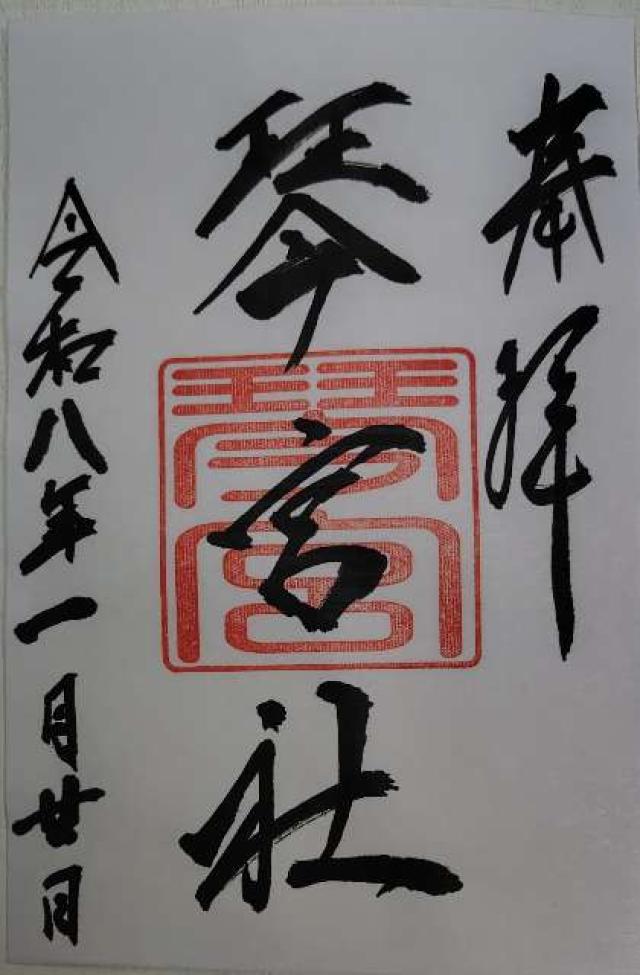 奉拝
琴宮社
琴宮
令和八年一月廿日